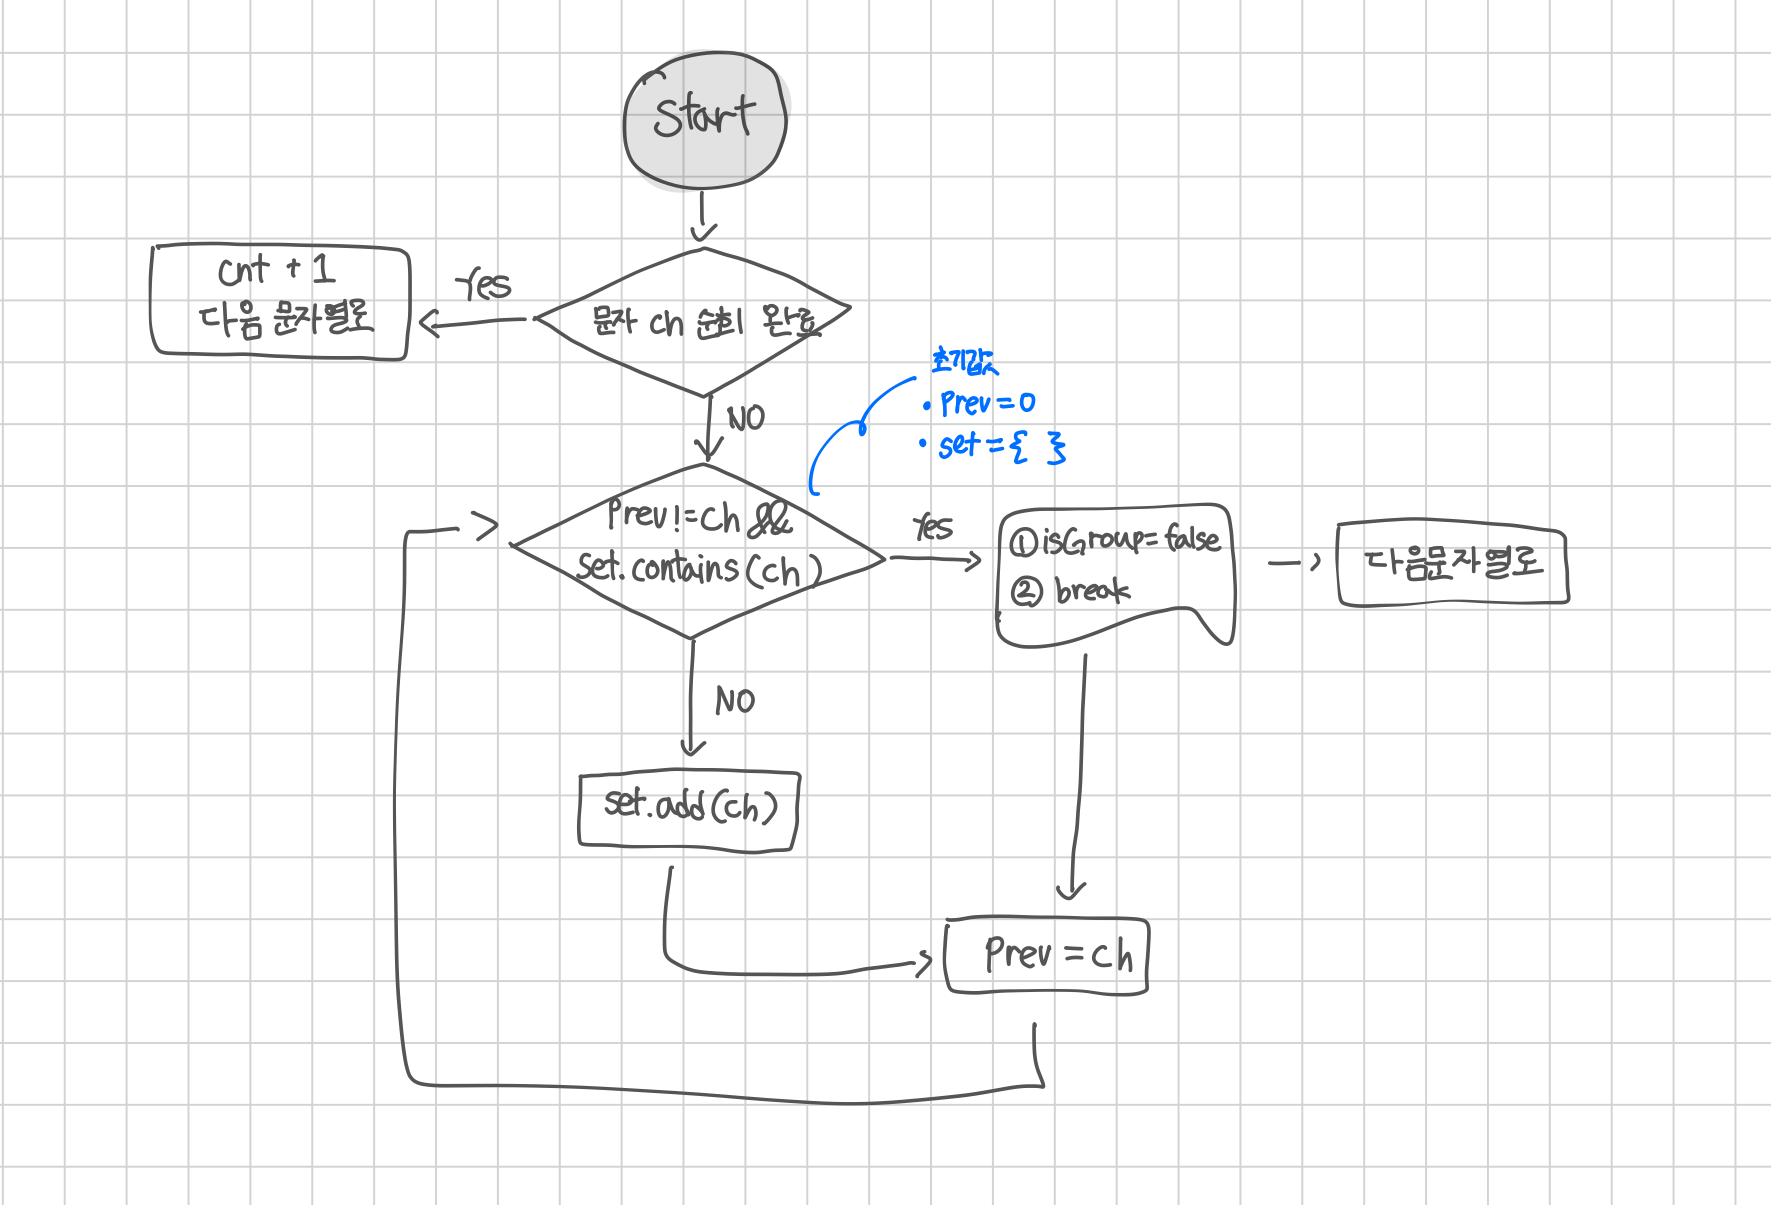 Start
cnt + 1
다음 문자열로
Yes
문자 ch 순회 완료
NO
초기값
• Prev = 0
• set = { }
Prev != ch &&
set.contains(ch)
Yes
① isGroup = false
② break
다음문자열로
NO
set.add(ch)
Prev = ch